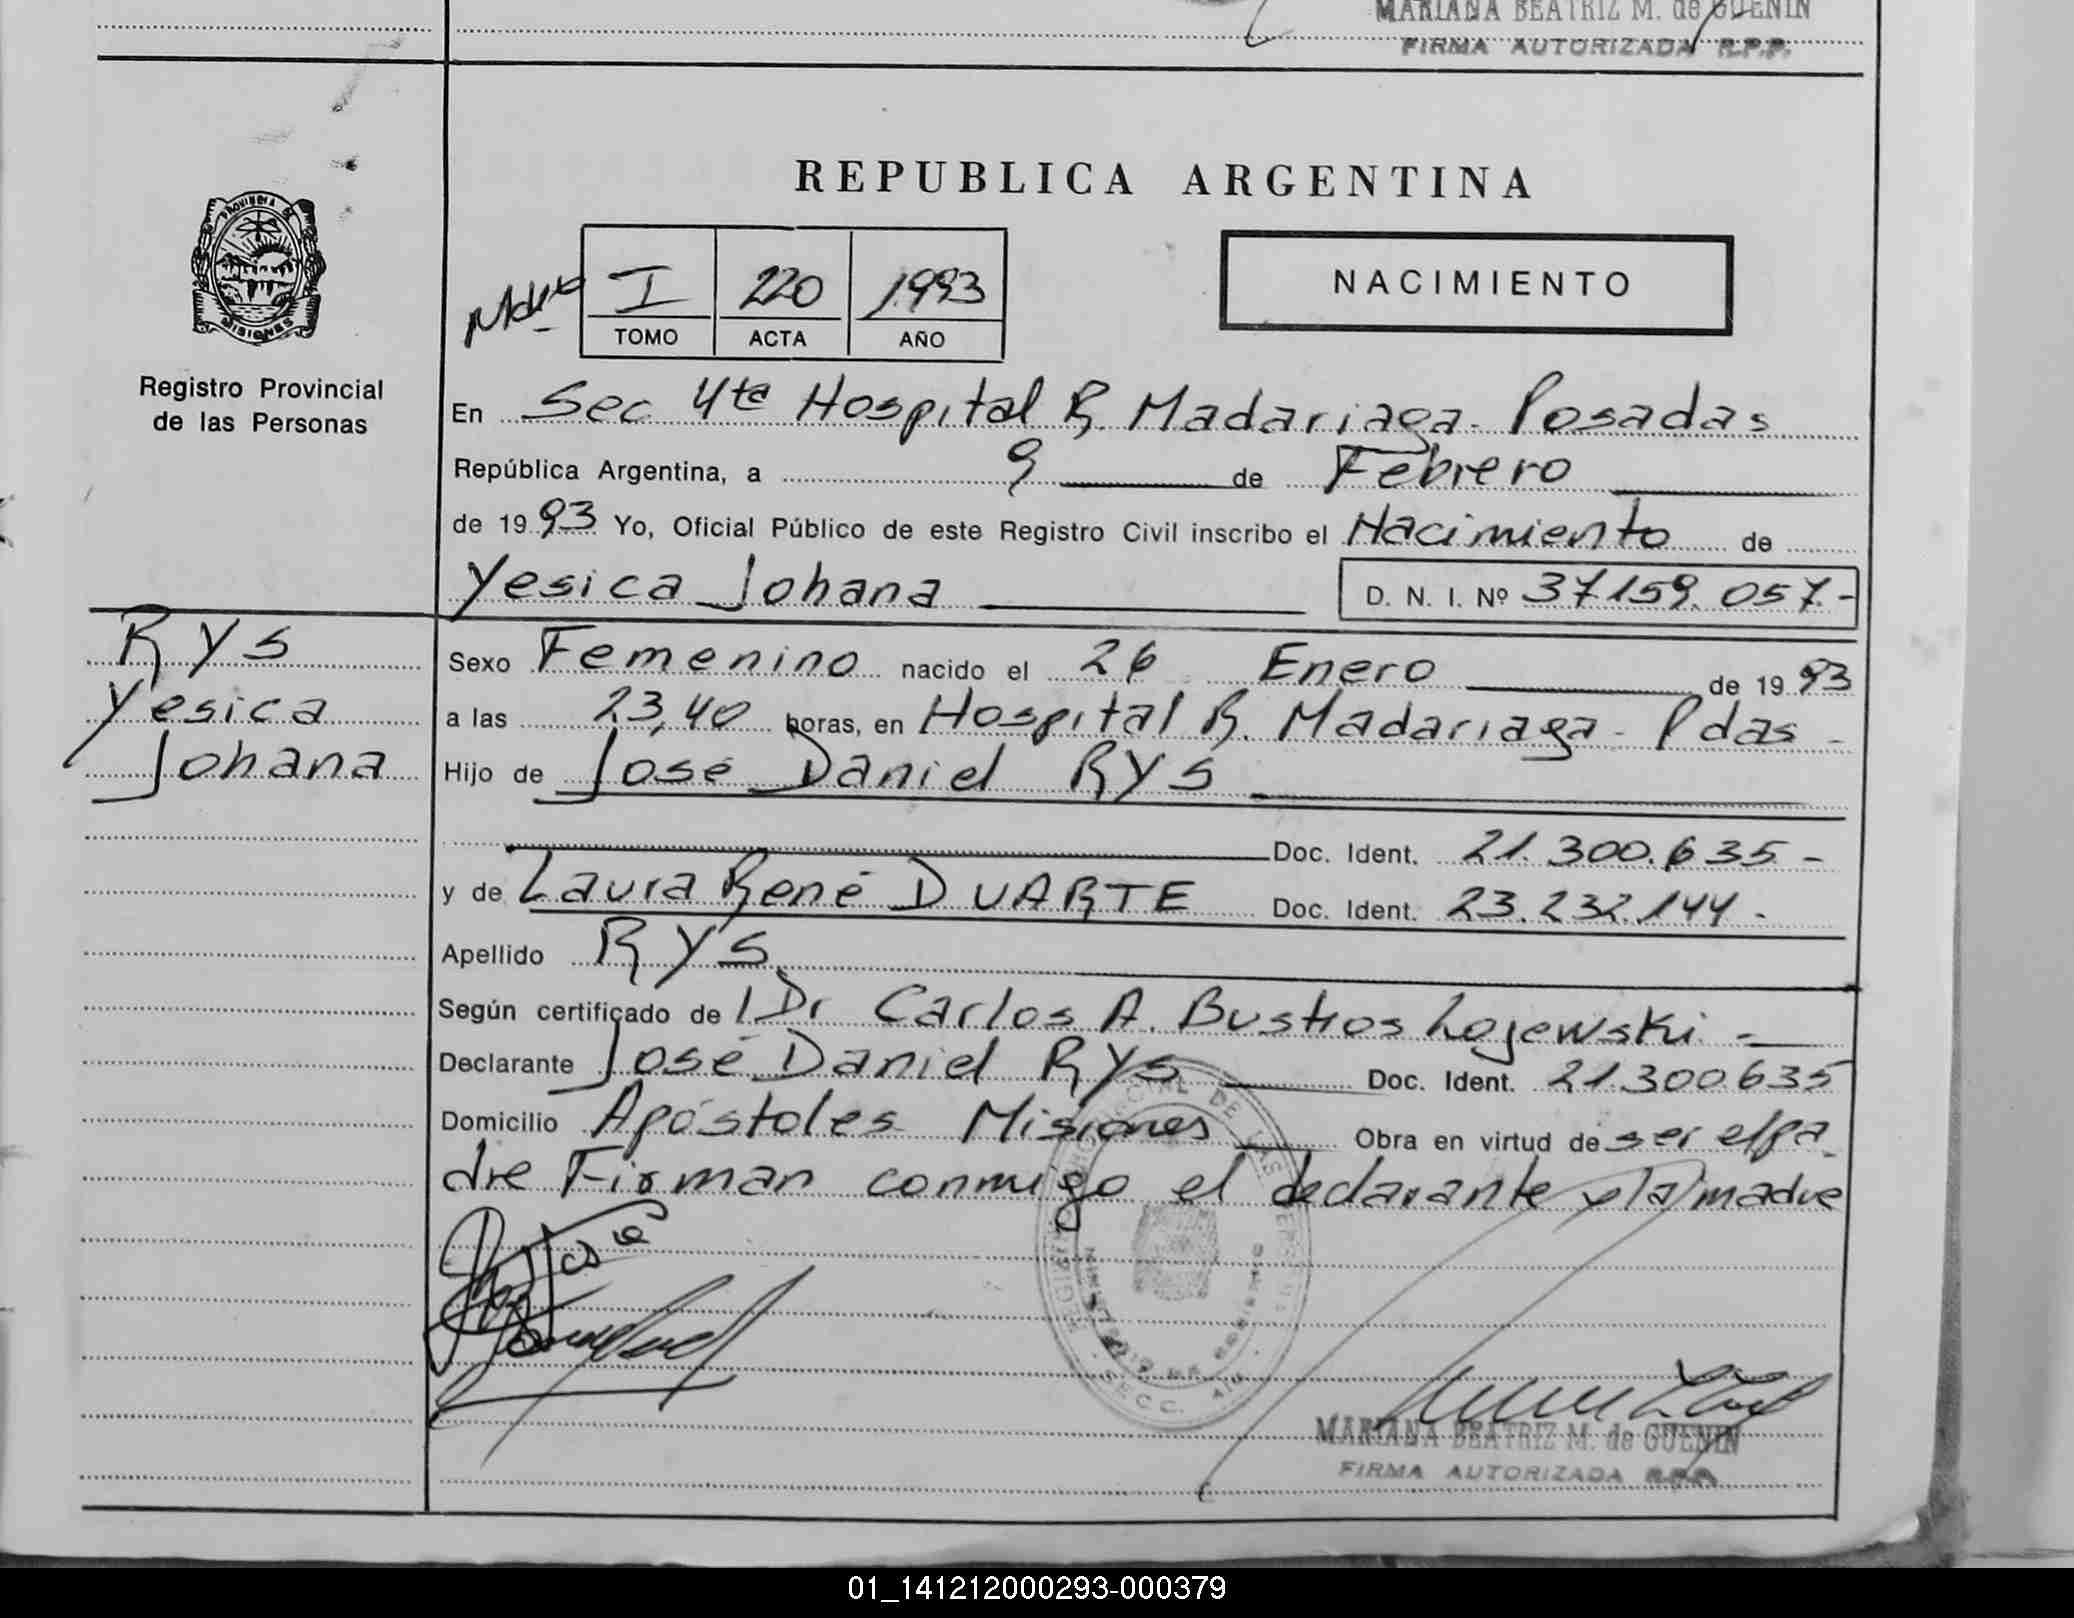 MARIANA BEATRIZ M. de GUENIN
FIRMA AUTORIZADA R.P.P.
REPUBLICA ARGENTINA
PROVINCIA DE
MISIONES
Registro Provincial
de las Personas
I 220 1993
TOMO ACTA AÑO
NACIMIENTO
En Sec 4ta Hospital R. Madariaga - Posadas
República Argentina, a 9 de Febrero
de 1993 Yo, Oficial Público de este Registro Civil inscribo el Nacimiento de
Yesica Johana D. N. I. Nº 37159.057.-
Rys
Yesica
Johana
Sexo Femenino nacido el 26 Enero de 1993
a las 23,40 horas, en Hospital R. Madariaga - Pdas -
Hijo de José Daniel RYS
Doc. Ident. 21.300.635 -
y de Laura René DUARTE Doc. Ident. 23.232.144 -
Apellido RYS
Según certificado de Dr Carlos A. Bustos Lojewski -
Declarante José Daniel RYS Doc. Ident. 21.300.635
Domicilio Apóstoles Misiones Obra en virtud de ser el pa
dre Firman conmigo el declarante y la madre
MARIANA BEATRIZ M. de GUENIN
FIRMA AUTORIZADA R.P.P.
01_141212000293-000379